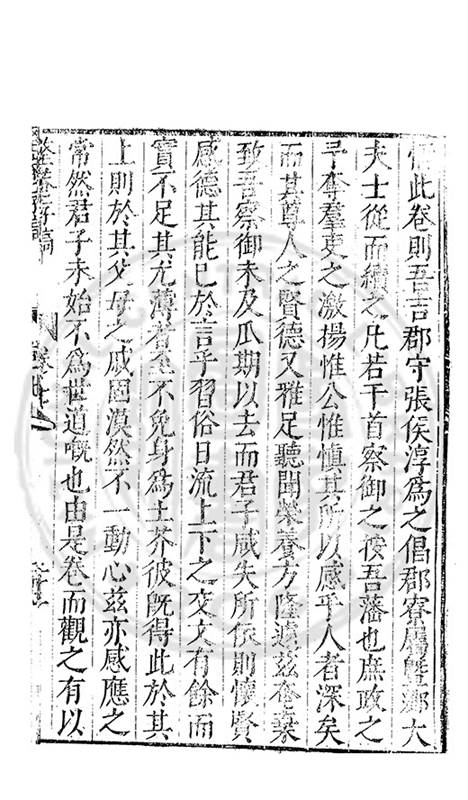 此卷則吾吉郡守張侯淳爲之倡郡寮屬曁鄉大
夫士從而續之凡若干首察御之按吾藩也庶政之
予奪羣吏之激揚惟公惟慎其所以感乎人者深矣
而其尊人之賢德又雅足聽聞榮養方隆遽茲奄棄
致吾察御未及瓜期以去而君子咸失所依則懷賢
感德其能已於言乎習俗日流上下之交文有餘而
實不足其尤薄者至不免身爲土芥彼旣得此於其
上則於其父母之戚固漠然不一動心茲亦感應之
常然君子未始不爲世道嘅也由是卷而觀之有以
整菴存稿 卷七